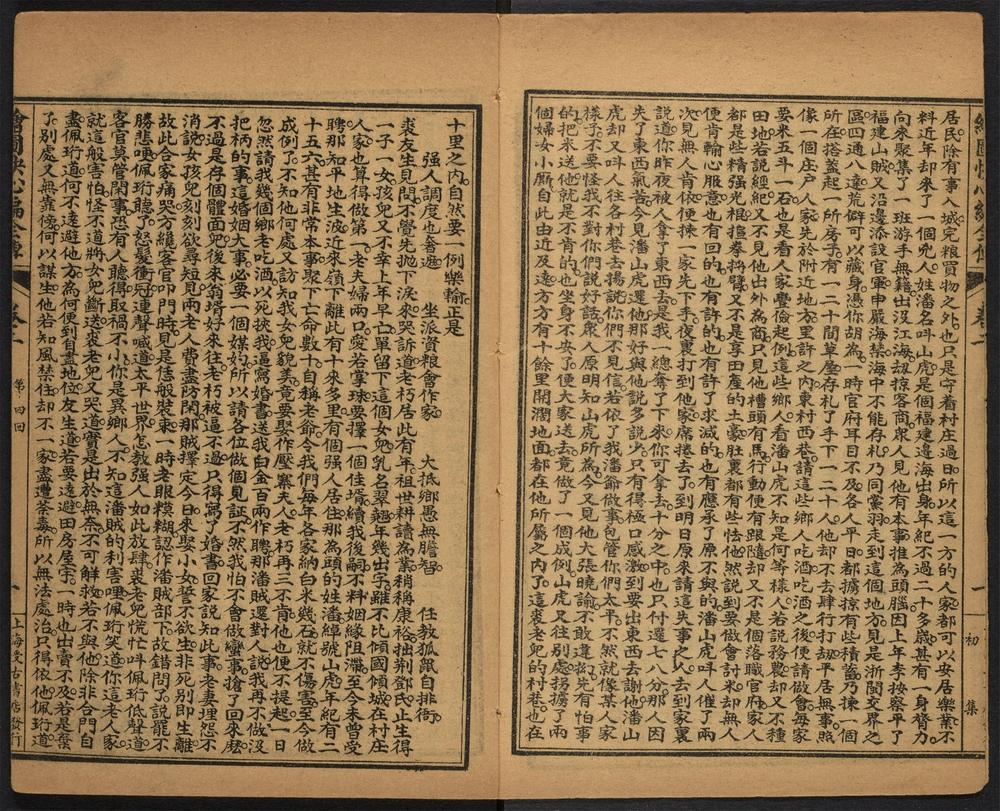 居民除有事入城完粮買物之外也只是守着村庄過日所以這一方的人家都可以安居樂業不
料近年却來了一個兇人姓潘名叫山虎是個福建邊海出身年紀不過二十多歲甚有一身膂力
向來聚集了一班游手無籍出没江海刼掠客商衆人見他有本事推為頭腦因上年李按察平了
福建山賊又沿邊添設官軍申嚴海禁海中不能存札乃同黨羽走到這個地方見是浙閩交界之
區四通八達荒僻可以藏身憑你胡為一時官府耳目不及各人平日都擄掠有些積蓄乃揀一個
所在搭蓋起一所房子有一二十間草屋存札了手下一二十人他却不去肆行打刼平居無事照
像一個庄户人家先於附近地方里許之内東村西巷請這些鄉人吃酒吃酒之後便請做會每家
要米五斗一石也是看人家豐儉起例這些鄉人看潘山虎不知是何等樣人若說務農却又不種
田地若說經紀又不見他出外為商只見他槽頭有馬行動便有跟隨却又不是個落職官府家人
都是些精强光棍搵拳捋臂又不是享田產的土豪肚裏都有些怯他然說到要做會討米却無人
便肯輸心服意也有回的也有許的也有許了求減的也有應承了原不與的潘山虎叫人催了兩
次見無人肯依便揀一家先下手夜裏打到他家席捲去了到明日原來請這失事之人去到家裏
說道你昨夜被人拿了東西去是我一總奪了下來你可拿去十分之中也只付還七八分那人因
失了東西氣苦今見潘山虎還他那好與他說多說少只有得極口感激到要出東西去謝他潘山
虎却又叫人往各村巷去揚說你們不見信若依了我潘爺做事包管你們太平不然就像某人家
樣子不要怪我不對你們說好話衆人原明知山虎所為今又見他大張曉諭不敢違拗先有怕事
的把米送他就是不肯的也坐身不安了便大家送去竟做了一個成例山虎又往别處擄掠了兩
個婦女小厮自此由近及遠方方有十餘里開濶地面都在他所屬之内了這裘老兒的村巷也在
一 初 集
十里之内自然要一例樂輸正是
强人調度也奢遮 坐派資粮會作家 大抵鄉愚無膽智 任教狐鼠自排衙
裘友生見問不覺先抛下淚來哭訴道老朽居此有年祖世耕讀為業稍稍康裕拙荆鄧氏止生得
一子一女孩兒又不幸上年早亡單留下這個女兒乳名翠翹年幾出字雖不比傾國傾城在村庄
人家也算得做第一老夫婦兩口愛若掌珠要擇一個佳壻續我後嗣不料姻緣阻滯至今未曾受
聘那知平地生波近來嶺下離此有十來多里有個强人居住那為頭的姓潘綽號山虎年紀有二
十五六甚有非常本事聚下亡命數十自稱老爺令我們每年各家納白米幾石就不傷害至今做
成例了不知他何處又訪知我女兒貌美竟要娶作壓寨夫人老朽再三不肯他也便不提起一日
忽然請我幾個鄉老吃酒以死挾我逼寫婚書送我白金百兩作聘那潘賊還對人說我再不做没
把柄的事這婚姻大事必要一個媒妁所以請各位做個見証不然我怕不會做蠻事搶了回來麽
不過是存個體面兒後來翁壻好來往老朽被逼不過只得寫了婚書回家說知此事老妻埋怨不
消說女孩兒刻刻欲尋短見兩老人費盡防閑那賊擇定今日來娶小女誓不欲生非死别即生離
故此合家痛哭方纔客官叩門時見是恁般裝束一時老眼糢糊認作潘賊部下故錯問了說罷不
勝悲哽佩珩聽了怒髮衝冠連聲喊道太平世界怎教强人如此放肆裘老兒慌忙叫佩珩低聲道
客官莫管閑事恐有人聽得取禍不小你是異鄉人不知這潘賊的利害哩佩珩笑道你這老人家
就這般害怕怪不道將女兒斷送裘老兒又哭道實是出於無奈不可解救若不與他除非合門自
盡佩珩道何不遠避他方為何便到自盡地位友生道若要遠避田房屋宇一時也出賣不及若是棄
了别處又無靠傍何以謀生他若知風禁住却不一家盡遭荼毒所以無法處治只得依他佩珩道
第四回
一
上海受古書店發行